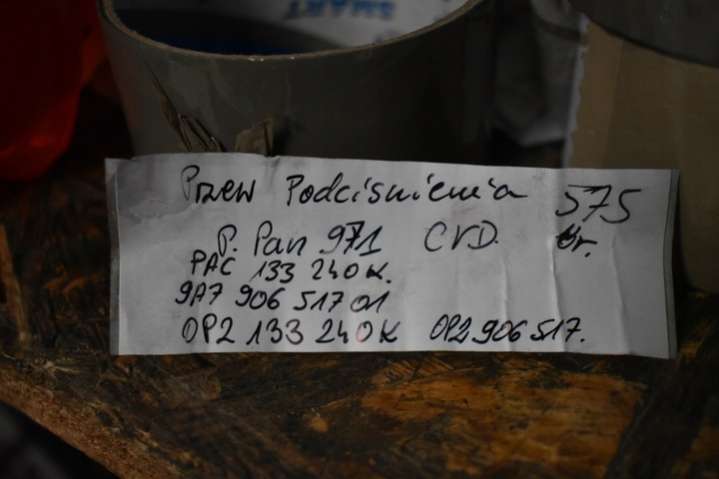 SMART
Przew Podciśnienia 575
P. Pan 971 CVD. Gr.
PAC 133 240K.
9A7 906 517 01
OP2 133 240K OP2 906 517.